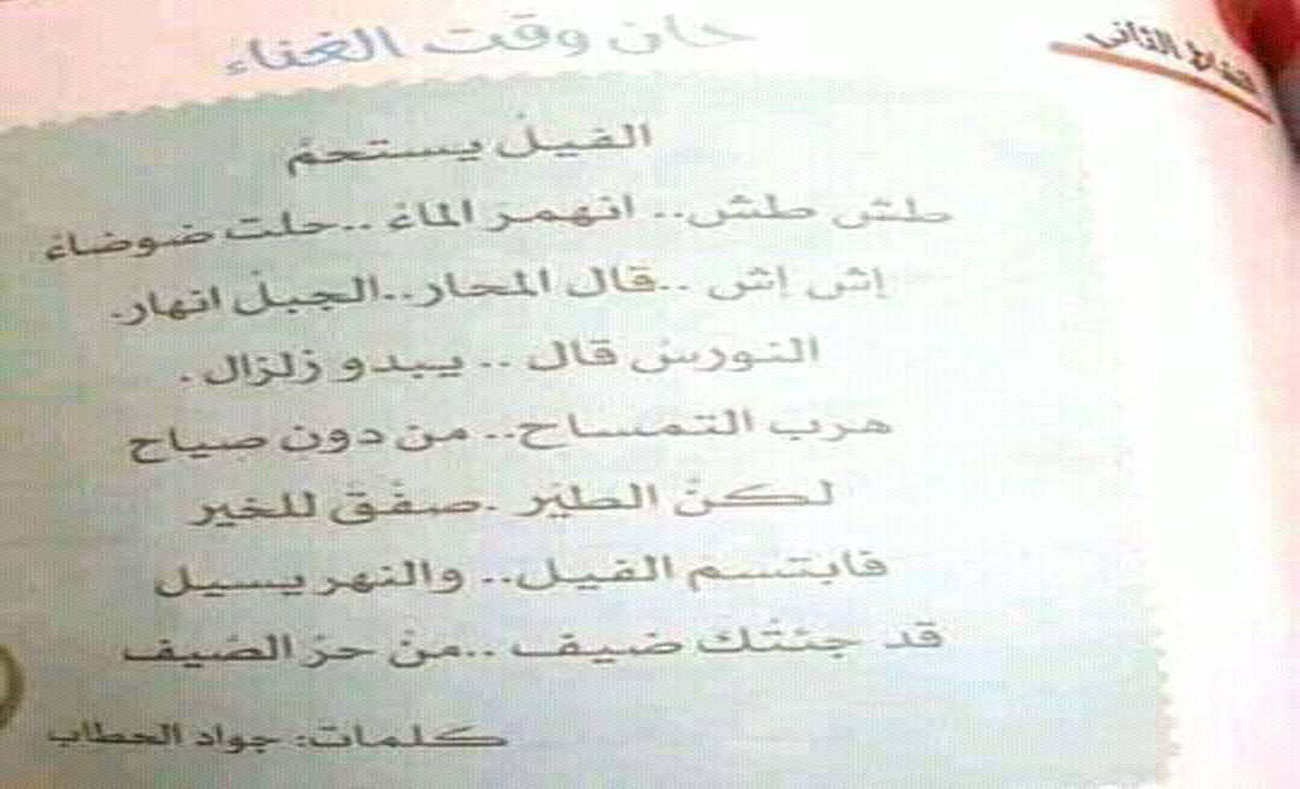 النشاط الثاني
حان وقت الغناء
الفيلُ يستحمُّ
طش طش.. انهمرَ الماءُ ..حلت ضوضاءُ
إش إش ..قال المحار..الجبلُ انهار.
النورسُ قال .. يبدو زلزال .
هرب التمساح.. من دون صياح
لكنّ الطيْر .صفّقَ للخير
فابتسم الفيل.. والنهر يسيل
قد جئتُك ضيف ..منْ حرّ الصّيف
كلمات: جواد الحطاب